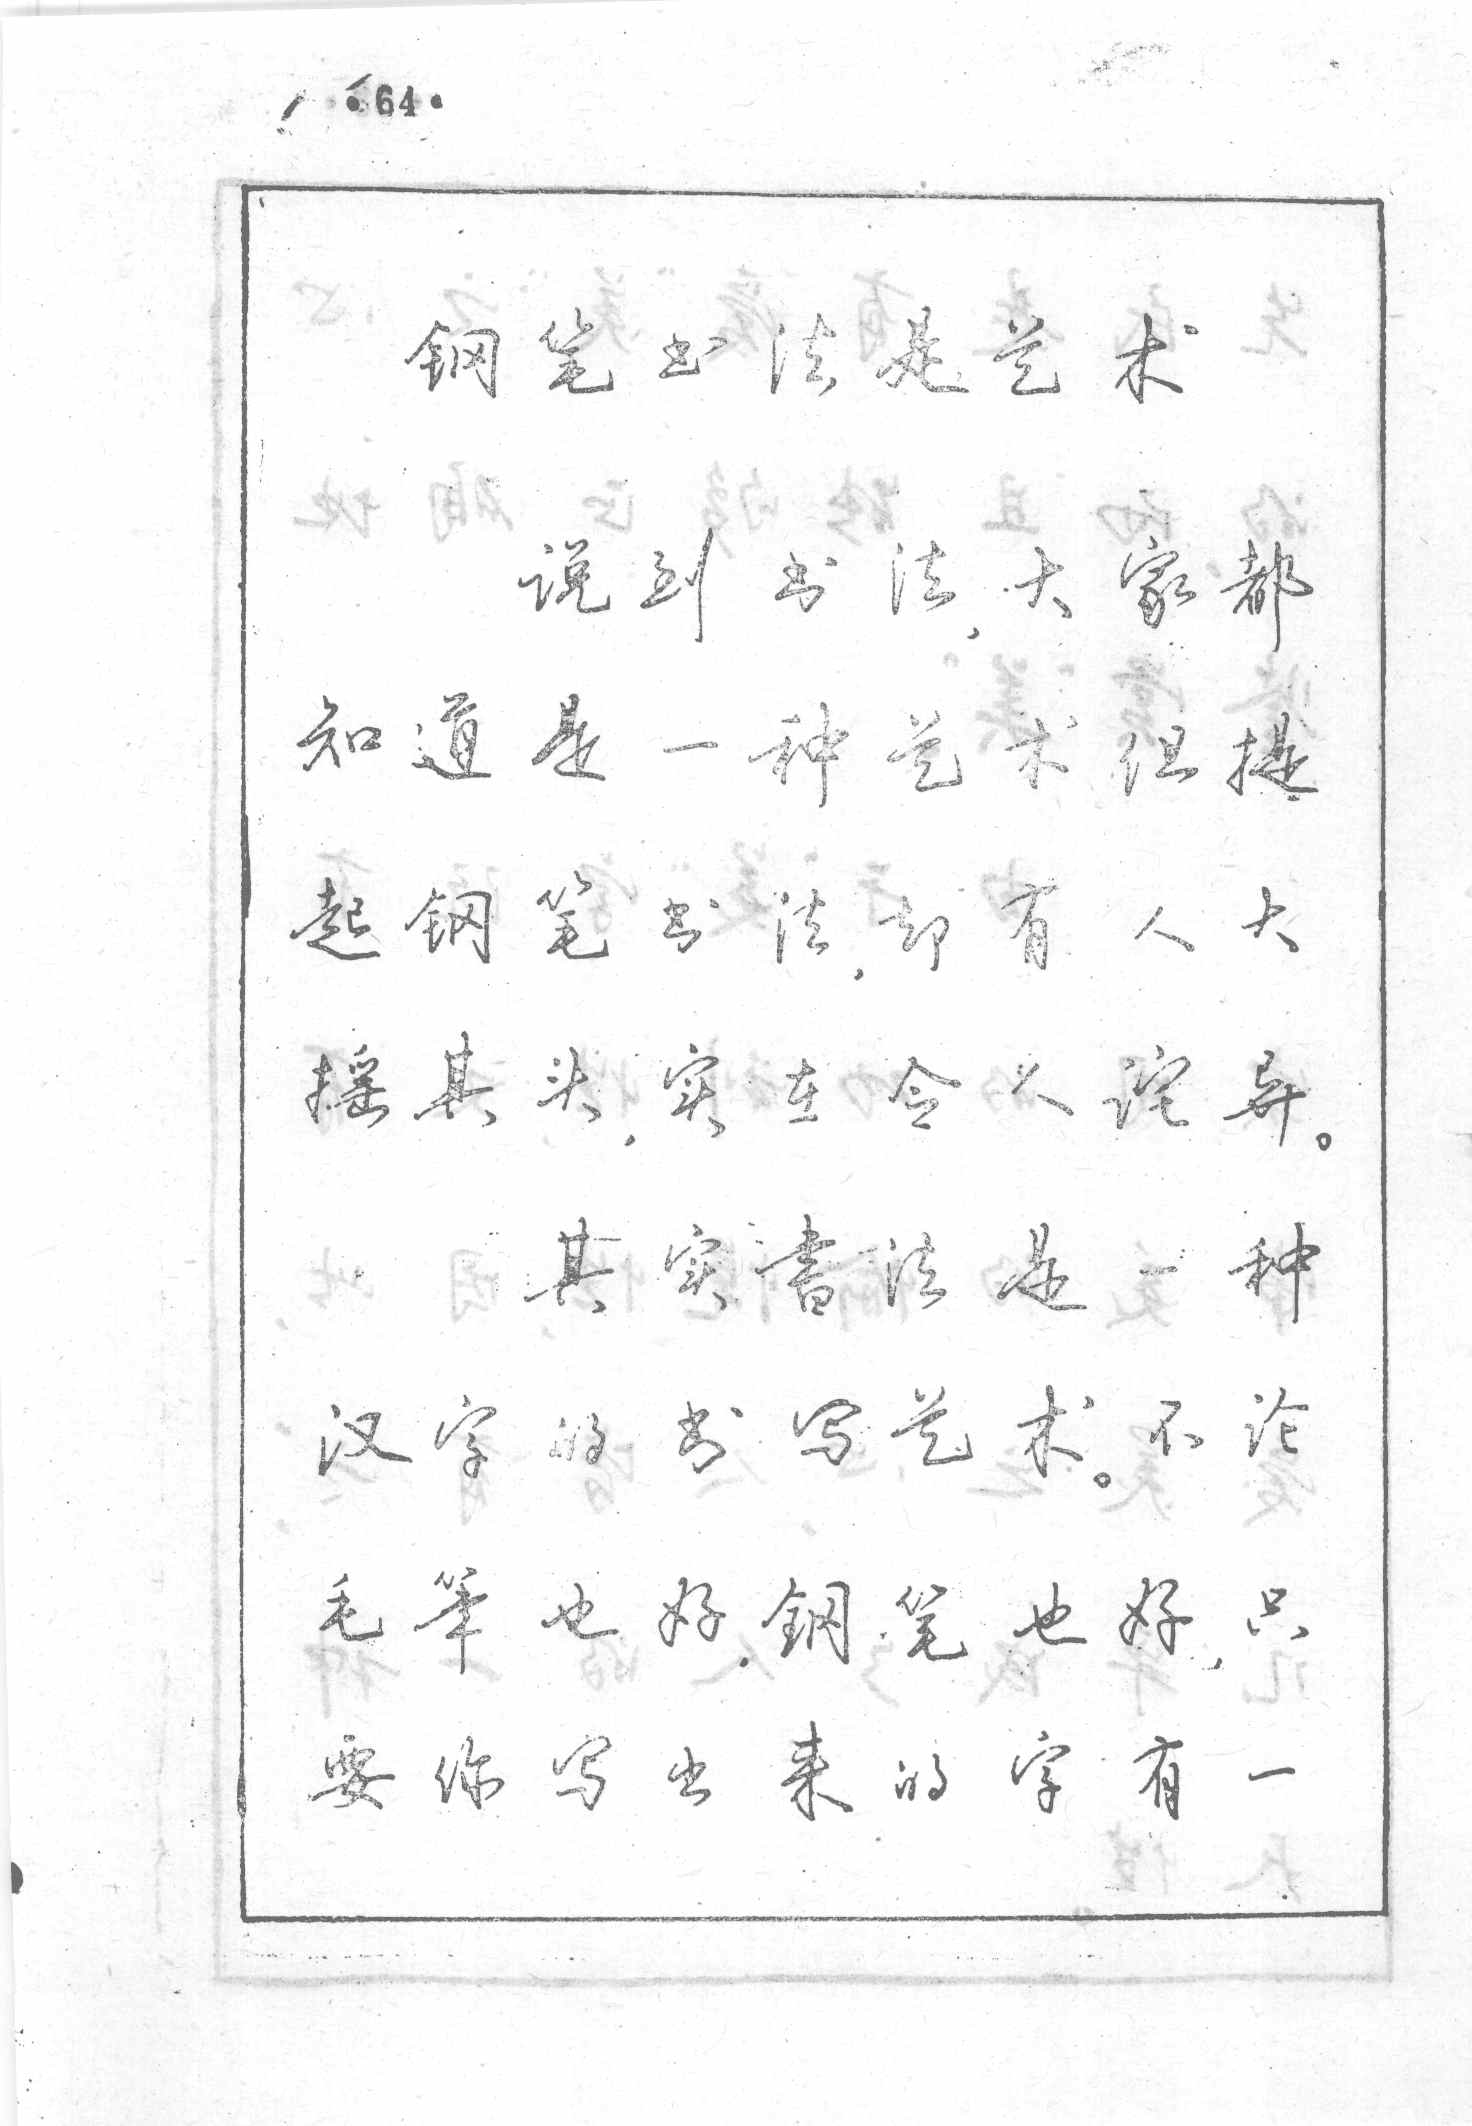 ·64·
钢笔书法是艺术
说到书法,大家都
知道是一种艺术但提
起钢笔书法,却有人大
摇其头,实在令人诧异。
其实書法是一种
汉字的书写艺术。不论
毛筆也好,钢笔也好,只
要你写出来的字有一